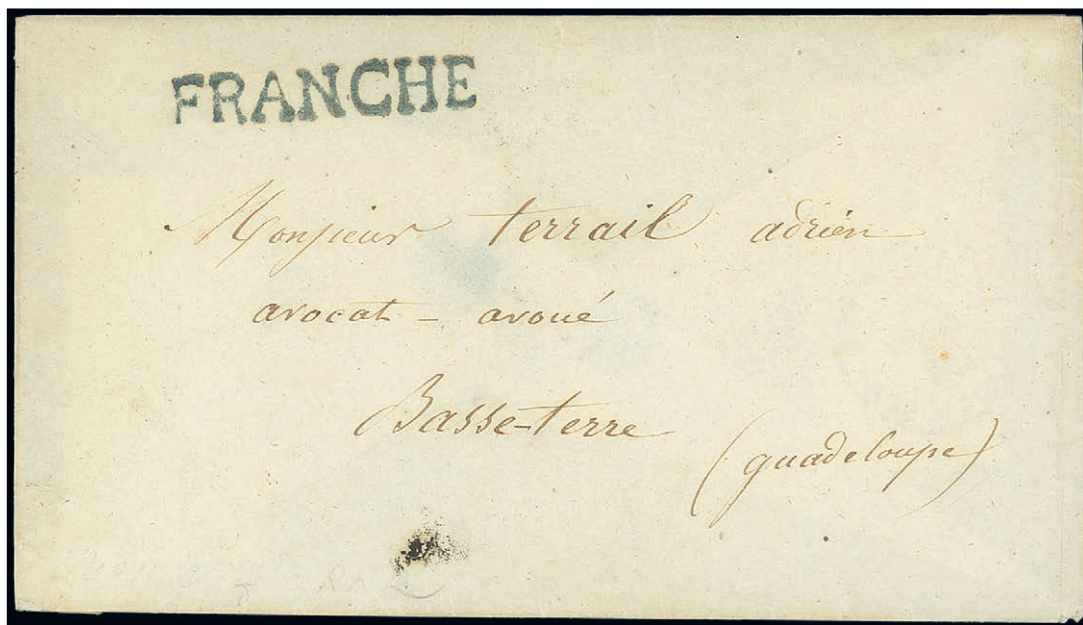 FRANCHE
Monsieur terrail adrien
avocat - avoué
Basse-terre
(guadeloupe)